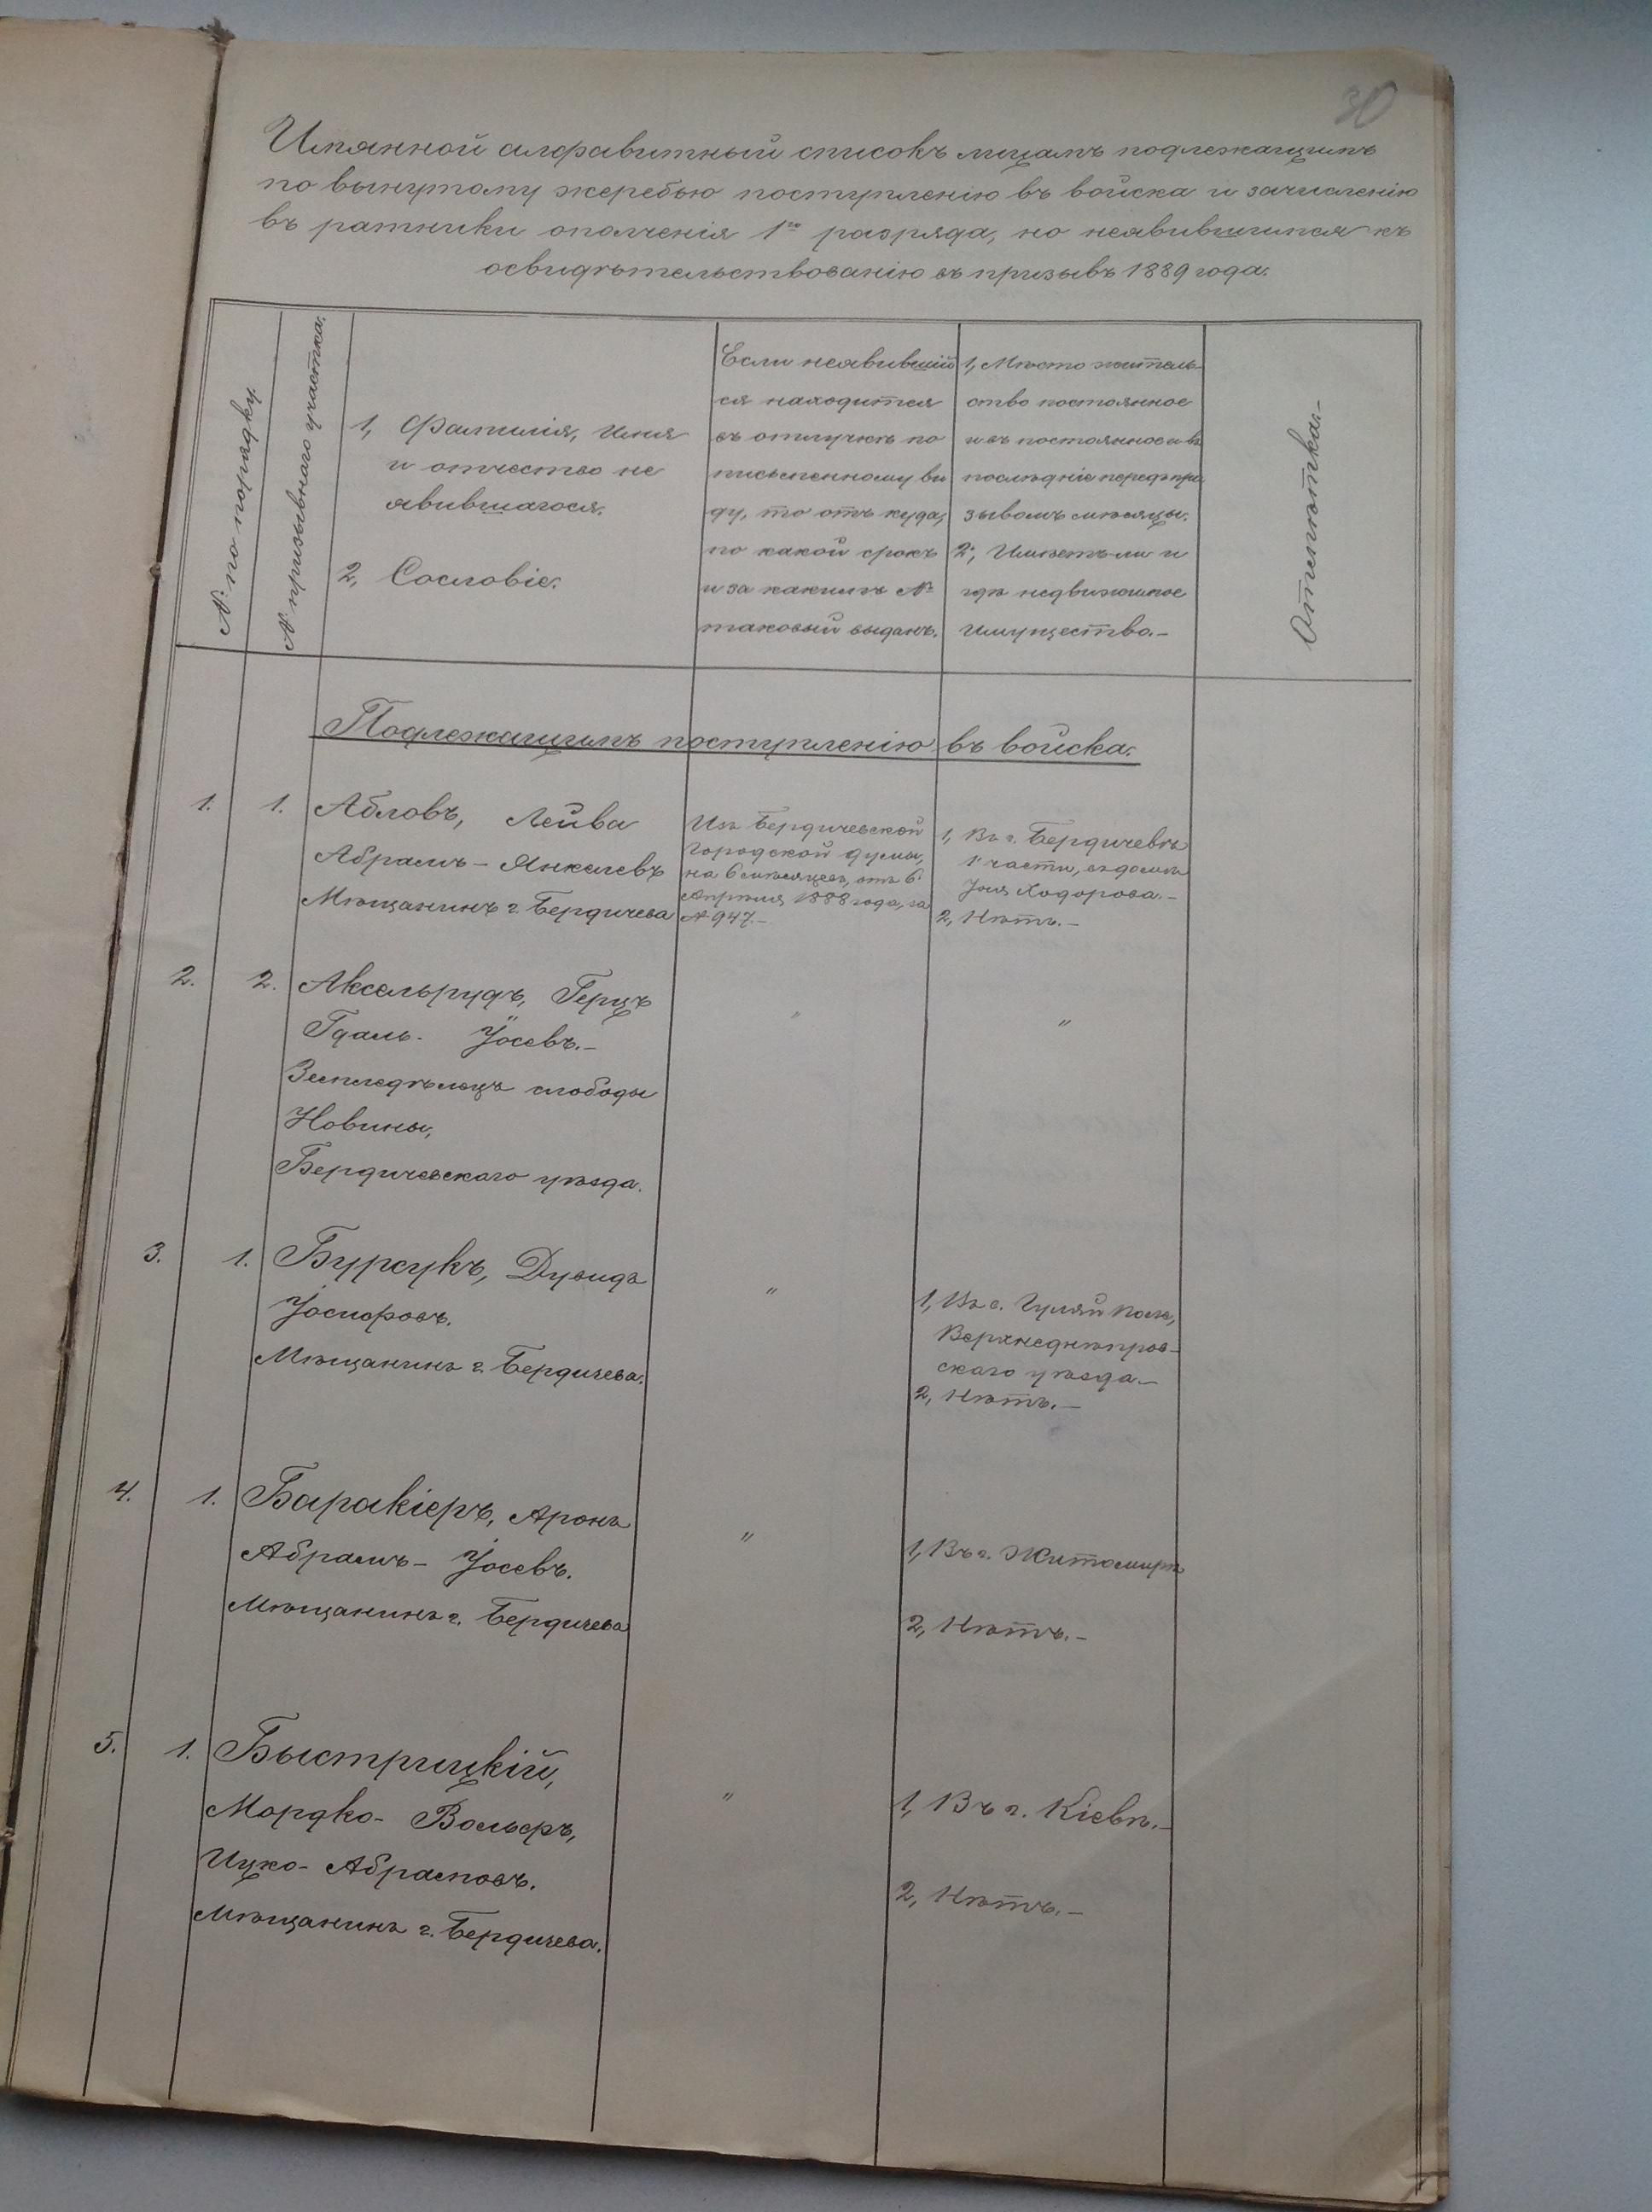 30
Имянной алфавитный списокъ лицамъ подлежащимъ
по вынутому жеребью поступленію въ войска и зачисленію
въ ратники ополченія 1го разряда, но неявившимся къ
освидѣтельствованію въ призывъ 1889 года.
№ по порядку.
№ призывнаго участка.
1, Фамилія, имя
и отчество не
явившагося.
2, Сословіе.
Если неявившій
ся находится
въ отлучкѣ по
письменному ви
ду, то отъ куда,
по какой срокъ
и за какимъ №
таковый выданъ.
1, Мѣсто житель-
ство постоянное
и въ
послѣдніе передъ при
зывомъ мѣсяцы.
2, Имѣетъ-ли и
гдѣ недвижимое
имущество.-
Отмѣтка.-
Подлежащимъ поступленію въ войска.
1. 1. Абловъ, Лейба
Абрамъ - Янкелевъ
Мѣщанинъ г. Бердичева
Изъ Бердичевской
городской думы,
на 6 мѣсяцевъ, отъ 6
Апрѣля 1888 года, за
№ 947.-
1, Въ г. Бердичевѣ
1 части, въ домѣ
Ходорова.-
2, Нѣтъ.-
2. 2. Аксельрудъ, Герцъ
Гдаль- Іосевъ.-
Земледѣлецъ слободы
Новины,
Бердичевскаго уѣзда.
"
"
3. 1. Бурсукъ, Дувидъ
Іосифовъ.
Мѣщанинъ г. Бердичева.
"
1, Въ с. Гуляй Поле,
Верхнеднѣпров-
скаго уѣзда.-
2, Нѣтъ.-
4. 1. Баракіеръ, Аронъ
Абрамъ - Іосевъ.
Мѣщанинъ г. Бердичева
"
1, Въ г. Житомирѣ
2, Нѣтъ.-
5. 1. Быстрицкій,
Мордко- Вольфъ,
Ицко- Абрамовъ.
Мѣщанинъ г. Бердичева.
"
1, Въ г. Кіевѣ.-
2, Нѣтъ.-